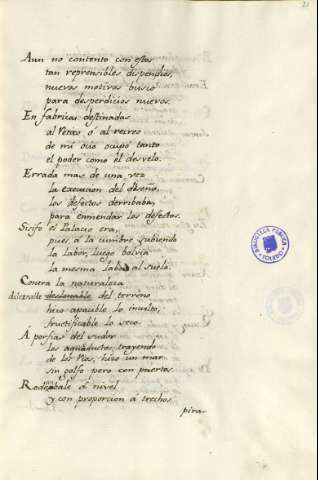 21
Aun no contento con estos
tan reprensibles dispendios,
nuevos motivos busco
para desperdicios nuevos.
En fabricas destinadas
al Vicio, ò al recreo
de mi ocio ocupó tanto
el poder como el desvelo.
Errada mas de una vez
la execucion del diseño,
los defectos derribaba,
para enmendar los defectos.
Sisifo el Palacio era,
pues à la cumbre subiendo
la labor, luego bolvia
la mesma labor al suelo.
Contra la naturaleza
deleznable del terreno
hizo apacible lo inculto,
fructificable lo seco.
A porfias del sudor
los aqueductos trayendo
de los Rios, hizo un mar
sin golfo pero con puertos.
Rodeabale à nivel
y con proporcion à trechos
pira-
BIBLIOTECA PUBLICA
TOLEDO